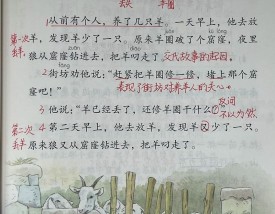 从前有个人，养了几只羊。一天早上，他去放
第一次丢羊
羊，发现羊少了一只。原来羊圈破了个窟窿，夜里
狼从窟窿钻进去，把羊叼走了。交代故事的起因。
街坊劝他说：“赶紧把羊圈修一修，堵上那个窟
窿吧！”
表现了街坊对养羊人的关心。
他说：“羊已经丢了，还修羊圈干什么？”
反问 不必
第二次丢羊
第二天早上，他去放羊，发现羊又少了一只。
原来狼又从窟窿钻进去，把羊叼走了。